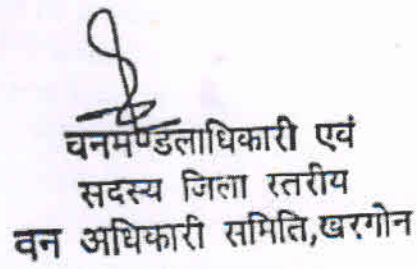 वनमण्डलाधिकारी एवं
सदस्य जिला स्तरीय
वन अधिकारी समिति,खरगोन